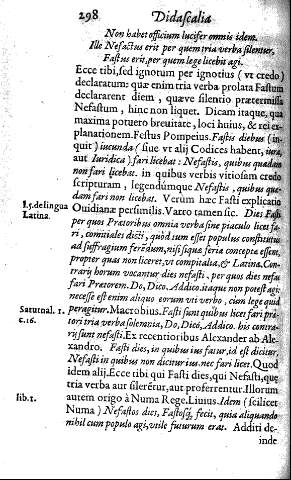 298 Didascalia
Non habet officium lucifer omnis idem.
Ille Nefastus erit per quem tria verba silentur,
Fastus erit, per quem lege licebit agi.
Ecce tibi, sed ignotum per ignotius (vt credo)
declaratum: quæ enim tria verba prolata Fastum
declararent diem, quæve silentio prætermissa
Nefastum, hinc non liquet. Dicam itaque, qua
maxima potuero breuitate, loci huius, & rei ex-
planationem. Festus Pompeius. Fastis diebus (in-
quit) iucunda (siue vt alij Codices habent, iura,
aut Iuridica) fari licebat: Nefastis, quibus quædam
non fari licebat. in quibus verbis vitiosam credo
scripturam, legendúmque Nefastis, quibus quæ-
dam non licebat. Verùm hæc Fasti explicatio
Ouidianæ persimilis. Varro tamen sic. Dies Fasti
l. 5. de lingua
Latina.
per quos Prætoribus omnia verba sine piaculo licet fa-
ri, comitiales dicti, quod tum esset populus constitutus
ad suffragium ferendum, nisi si quæ feriæ conceptæ essent,
propter quas non liceret, vt compitalia, & Latina. Con-
trarij horum vocantur dies nefasti, per quos dies nefas
fari Prætorem. Do, Dico, Addico. itaque non potest agi;
necesse est enim aliquo eorum vti verbo, cùm lege quid
peragitur. Macrobius. Fasti sunt quibus licet fari præ-
Saturnal. 1.
c. 16.
tori tria verba solemnia, Do, Dico, Addico. his contra-
rij sunt nefasti. Ex recentioribus Alexander ab Ale-
xandro. Fasti dies, in quibus ius fatur, id est dicitur,
Nefasti in quibus non dicitur ius. nec fari licet. Quod
idem alij. Ecce tibi qui Fasti dies, qui Nefasti, quę
tria verba aut silerẽtur, aut proferrentur. Illorum
autem origo à Numa Rege. Liuius. Idem (scilicet
lib. 1.
Numa) Nefastos dies, Fastósq́; fecit, quia aliquando
nihil cum populo agi, vtile futurum erat. Additi de-
inde